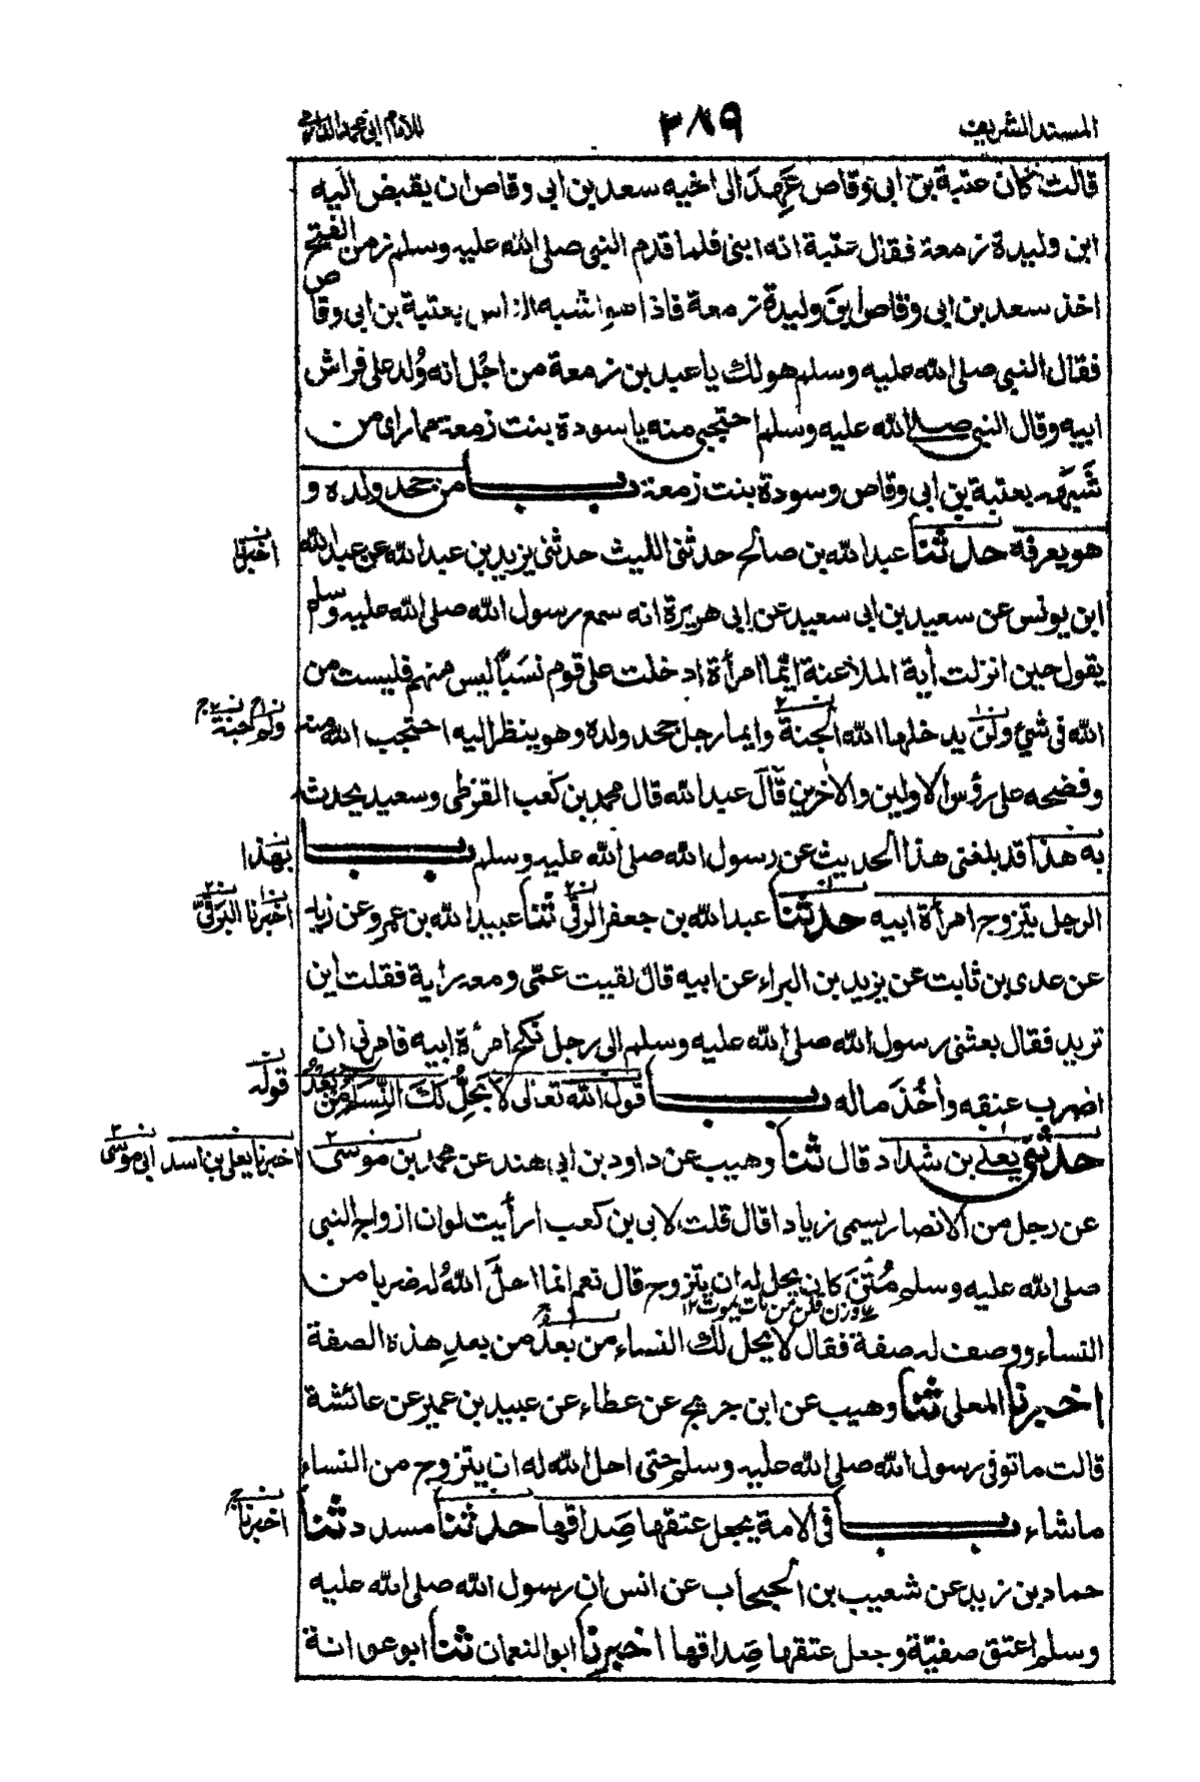 المسند الشريف ٢٨٩ للامام ابى محمد الدارمى
قالت كان عتبة بن ابى وقاص عَهِدَ الى اخيه سعد بن ابى وقاص ان يقبض اليه
ابن وليدة زمعة فقال عتبة انه ابنى فلما قدم النبى صلى الله عليه وسلم زمن الفتح
اخذ سعد بن ابى وقاص ابنَ وليدة زمعة فاذا هو اشبه الناس بعتبة بن ابى وقاص
فقال النبى صلى الله عليه وسلم هو لك يا عبد بن زمعة من اجل انه وُلد على فراش
ابيه وقال النبى صلى الله عليه وسلم احتجبى منه يا سودة بنت زمعة مما راى من
شَبَهِه بعتبة بن ابى وقاص وسودة بنت زمعة بـــاب من جحد ولده و
هو يعرفه حدثنا عبد الله بن صالح حدثنى الليث حدثنى يزيد بن عبد الله عن عبد الله
اخبرنا
ابن يونس عن سعيد بن ابى سعيد عن ابى هريرة انه سمع رسول الله صلى الله عليه وسلم
يقول حين انزلت أية الملاعنة ايّما امرأة ادخلت على قوم نسَبًا ليس منهم فليست من
الله فى شئ ولن يدخلها الله الجنة وايما رجل جحد ولده وهو ينظر اليه احتجب الله منه
ولم جنته
وفضحه على رؤس الاولين والاخرين قال عبد الله قال محمد بن كعب القرظى وسعيد يحدث
به هذا قد بلغنى هذا الحديث عن رسول الله صلى الله عليه وسلم بـــاب
بهذا
الرجل يتزوج امرأة ابيه حدثنا عبد الله بن جعفر الرقى ثنا عبيد الله بن عمرو عن زيد
اخبرنا الرَقّيّ
عن عدى بن ثابت عن يزيد بن البراء عن ابيه قال لقيت عمّى ومعه راية فقلت اين
تريد فقال بعثنى رسول الله صلى الله عليه وسلم الى رجل نكح امرأة ابيه فامرنى ان
اضرب عنقه وأخُذَ ماله بـــاب قول الله تعالى لَا يَحِلُّ لَكَ النِّسَاءُ مِنْ بَعْدُ
قوله
حدثنى يعلى بن شداد قال ثنا وهيب عن داود بن ابى هند عن محمد بن موسى
اخبرنا يعلى بن اسد ابى موسى
عن رجل من الانصار يسمى زيادا قال قلت لابى بن كعب ارأيت لو ان ازواج النبى
صلى الله عليه وسلم مُتْنَ كان يحل له ان يتزوج قال نعم انما احلَّ اللهُ له ضربا من
وزن قلن من مات يموت ١٢
النساء ووصف له صفة فقال لا يحل لك النساء من بعدُ من بعدِ هذه الصفة
اخبرنا المعلى ثنا وهيب عن ابن جريج عن عطاء عن عبيد بن عمير عن عائشة
قالت ما توفى رسول الله صلى الله عليه وسلم حتى احل الله له ان يتزوج من النساء
ما شاء بـــاب فى الامة يجعل عتقها صِداقها حدثنا مسدد ثنا
اخبرنا
حماد بن زيد عن شعيب بن الحبحاب عن انس ان رسول الله صلى الله عليه
وسلم اعتق صفيّة وجعل عتقها صِداقها اخبرنا ابو النعمان ثنا ابو عوانة